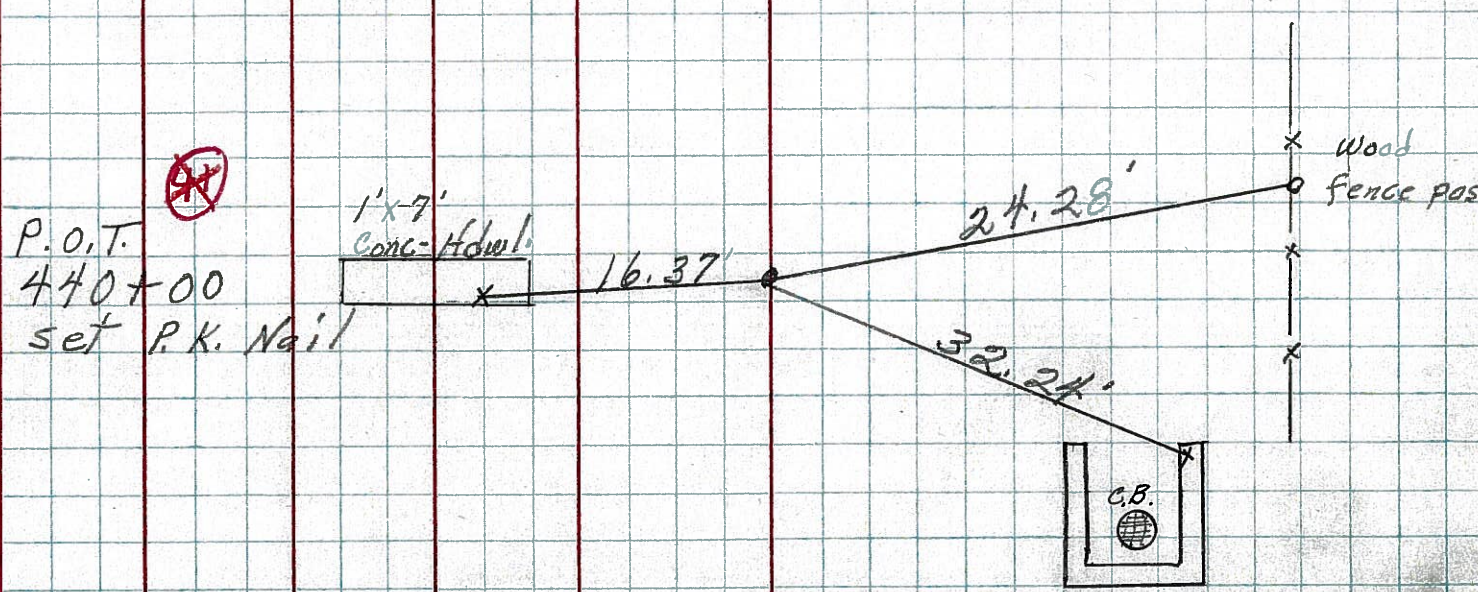 P.O.T.
440+00
set P.K. Nail
1'x7'
Conc-Hdwl.
16.37'
24.28'
32.24'
Wood
fence pos
C.B.